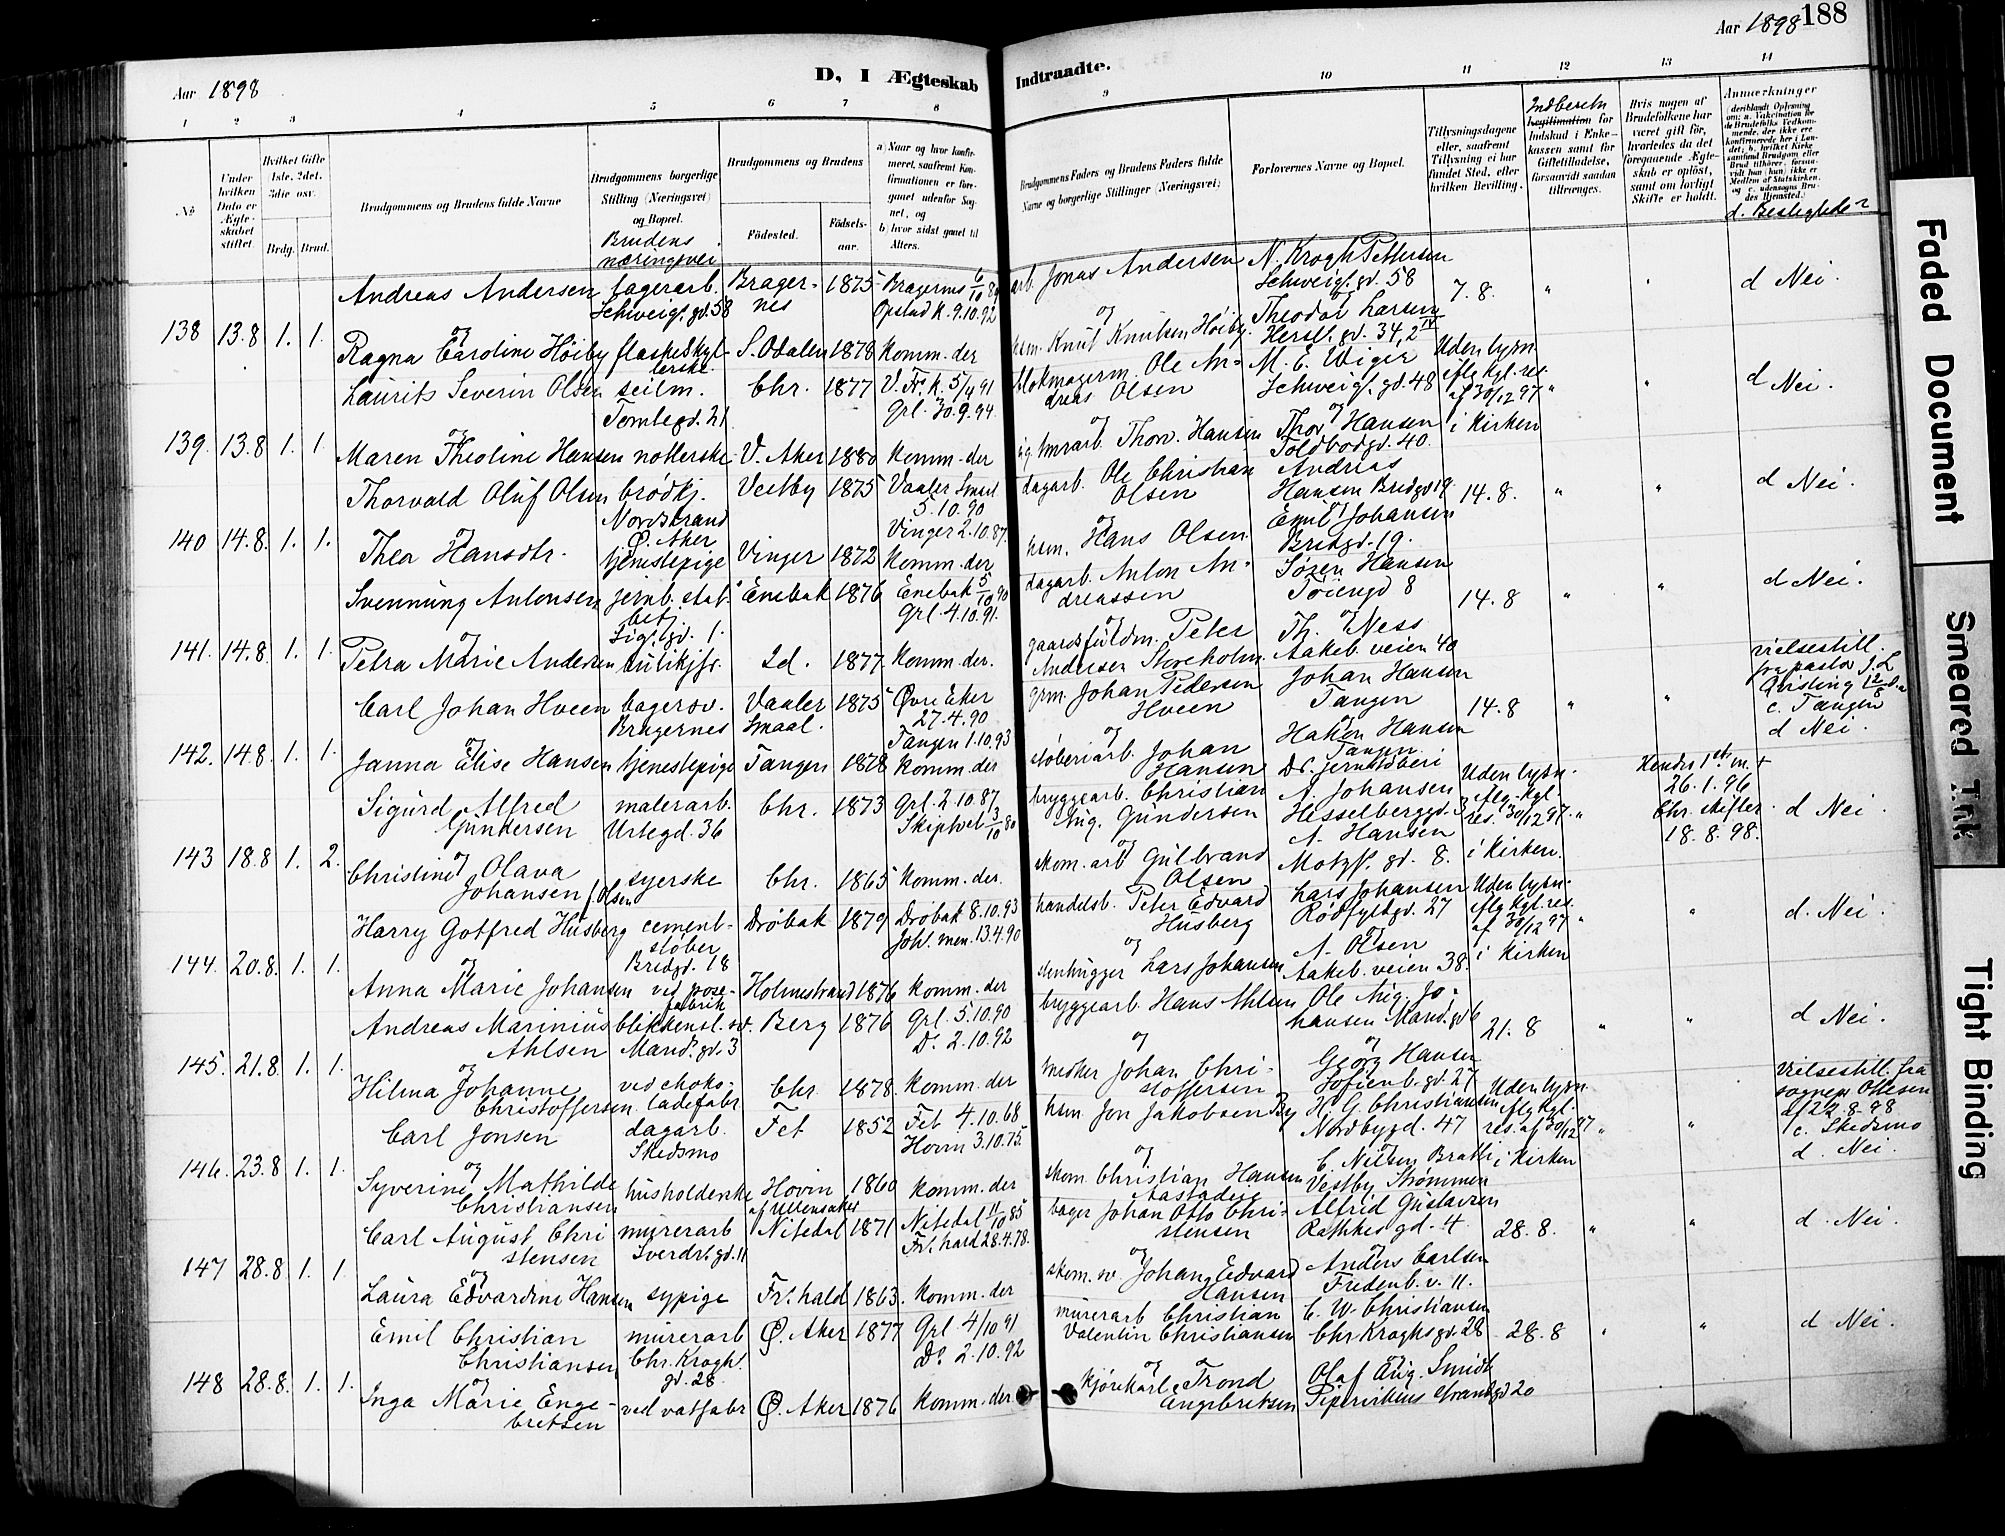 Aar 1898
D, I Ægteskab
Indtraadte.
Aar 1898 188
1 2 3 4 5 6 7 8 9 10 11 12 13 14
No.
Under hvilken Dato er Ægteskabet stiftet.
Hvilket Gifte (1ste, 2det, 3die osv.
Brdg. Brud.
Brudgommens og Brudens fulde Navne
Brudgommens borgerlige Stilling (Næringsvei) og Bopæl.
Brudens næringsvei
Brudgommens og Brudens
Fødested. Fødselsaar.
a) Naar og hvor konfirmeret, saafremt Konfirmationen er foregaaet udenfor Sognet, og
b) hvor sidst gaaet til Alters.
Brudgommens Faders og Brudens Faders fulde Navne og borgerlige Stillinger (Næringsvei)
Forlovernes Navne og Bopæl.
Tillysningsdagene eller, saafremt Tillysning ei har fundet Sted, efter hvilken Bevilling.
Legitimation for Indskud i Enkekassen samt for Giftetilladelse, forsaavidt saadan tiltrænges.
Hvis nogen af Brudefolkene har været gift før, hvorledes da det foregaaende Ægteskab er opløst, samt om lovligt Skifte er holdt.
Anmærkninger
138 13.8 1. 1.
Andreas Andersen lagerarb. Schweig. gd. 58 Bragernes 1875 Bragernes Opstad k. 9.10.92
arb. Jonas Andersen N. Krogh Pettersen Schweig. gd. 58 7.8. " d Nei.
og
Ragna Caroline Höiby S. Odalen 1878 Komm. der
hsm. Knut Knutsen Höiby Theodor Larsen Hersl. gd. 34,2 IV
139. 13.8 1. 1.
Laurits Severin Olsen seilm. Tomtegd. 21 Chr. 1877 V. Fr. k. 5/4 91 Grl. 30.9.94
Ole Andreas Olsen M. E. Wiger Schweig. gd. 48 Uden lysn. iflg kgl. res. af 30/12 97 " d Nei.
og
Maren Theoline Hansen V. Aker 1880 Komm. der
Thorv. Hansen Thor Hansen Toldbodgd. 40. i Kirken
140 14.8. 1. 1.
Thorvald Oluf Olsen brödkj. Nordstrand Ø. Aker Vestby 1875 Vaaler Smaal 5.10.90
dagarb. Ole Christian Olsen Andreas Hansen Bredgd 19 14.8. " d Nei.
Thea Hansdtr. tjenestepige Vinger 1872 Vinger 2.10.87. Komm. der
hsm. Hans Olsen Emil Johansen Bredgd. 19.
141. 14.8. 1. 1.
Svenning Antonsen jernb. stat. betj. Enebak 1876 Enebak 5/10 90 Grl. 4.10.91.
dagarb. Anton Andreassen Sören Hansen Töiengd 8 14.8 " d Nei.
og
Petra Marie Andersen butikjfr. Id. 1877 Komm. der.
gaardsfuldm. Peter Andersen Storeholm Th. Ness Aakeb. veien 40
142. 14.8. 1. 1.
Carl Johan Hveen bagersv. Bragernes Vaaler Smaal. 1875 Øvre Eker 27.4.90 Tangen 1.10.93
grm. Johan Pedersen Hveen Johan Hansen Tangen 14.8 " vielsestill. fra pastor J. L. Qvisling 12/8 c. Tangen d Nei.
og
Janna Elise Hansen tjenestepige Tangen 1878 Komm. der
støberiarb. Johan Hansen Hakon Hansen Tangen Dr. jernstöberi
143 18.8 1. 2.
Sigurd Alfred Gundersen malerarb. Urtegd. 36 Chr. 1873 Grl. 2.10.87 Skiptvet 3/10 80
bryggearb. Christian Aug. Gundersen A. Johansen Hesselberggd. 3 Uden lysn. iflg. kgl. res. 30/12 97. " Hendes 1ste m. + 26.1.96 Chr. skifter. 18.8.98. d Nei
og
Christine Olava Johansen f. Olsen syerske Chr. 1865 Komm. der.
skom. arb Gulbrand Olsen A. Hansen Motzf. gd. 8. i Kirken.
144. 20.8. 1. 1.
Harry Gotfred Husberg cementstöber Bredgd. 18 Dröbak 1879 Dröbak 8.10.93 Joh. men. 13.4.90
handelsb. Peter Edvard Husberg Lars Johansen Rödfyldgd. 27 Uden lysn. iflg kgl. res. af 30/12 97 " d. Nei.
og
Anna Marie Johansen ved posefabrik Holmestrand 1876 Komm. der
stenhugger Lars Johansen A. Olsen Aakeb. veien 38. i Kirken
145. 21.8. 1. 1.
Andreas Marinius Ahlsen blikkensl. sv. Mandr. gd. 3 Berg 1876 Grl. 5.10.90 Do. 2.10.92
bryggearb. Hans Ahlsen Ole Aug. Johansen Mand. gd 6 21.8 " d Nei.
og
Hilma Johanne Christoffersen ved chokoladefabr. Chr. 1878. Komm. der
snedker Johan Christoffersen Georg Hansen Sofienb. gd. 27
146. 23.8 1. 1.
Carl Jonsen dagarb. Skedsmo Fet 1852 Fet 4.10.68 Hovin 3.10.75
hsm Jon Jakobsen By H. G. Christiansen Nordbygd. 47 Uden lysn. iflg kgl. res. af 30/12 97 " Vielsestill. fra sognepr. Ottesen af 22.8.98 c. Skedsmo d. Nei.
og
Syverine Mathilde Christiansen husholderske Hovin af Ullensaker 1860 Komm. der
skom. Christian Hansen Aastaden C. Nilsen Brathi Vestby Strömmen i Kirken
147 28.8 1. 1.
Carl August Christensen murerarb Sverdr. gd. 11 Nitedal 1871 Nitedal 11/10 85 Fr. hald 28.4.78.
bager Johan Otto Christensen Alfrid Gustavsen Rathkes gd. 4 28.8. " d. Nei.
og
Laura Edvardine Hansen sypige Fr. hald 1863. Komm. der
skom. sv Johan Edvard Hansen Anders Carlsen Fredenb. v. 11.
148 28.8. 1. 1.
Emil Christian Christiansen murerarb Chr. Krogh. gd. 28 Ø. Aker 1877 Grl 4/10 91 Do. 2.10.92
murerarb Christian Valentin Christiansen C. W. Christiansen Chr. Kroghs gd. 28 28.8 " d Nei.
og
Inga Marie Engebretsen ved vatfabr Ø. Aker 1876 Komm. der
kjörekarl Trond Engebretsen Olaf Aug. Smidt Pipervikens Strandgd 20
Faded Document
Smeared Ink
Tight Binding